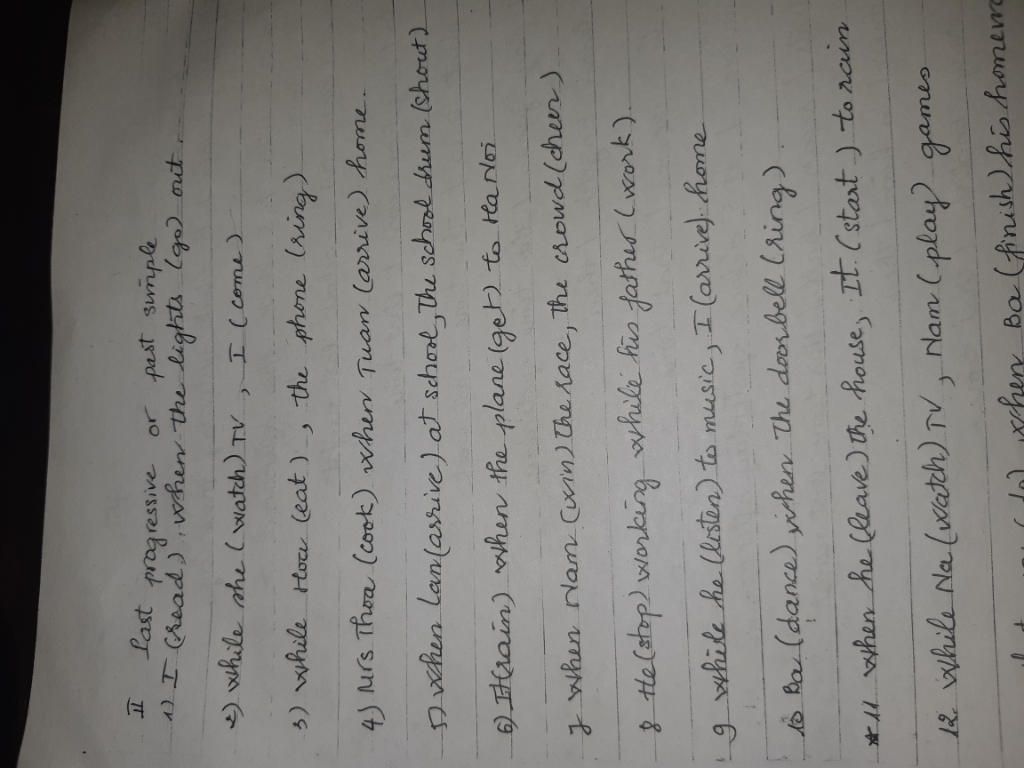 II Past progressive or past simple
1) I (read), when the lights (go) out.
2) while she (watch) TV, I (come)
3) while Hoa (eat), the phone (ring)
4) Mrs Thoa (cook) when Tuan (arrive) home.
5) when Lan (arrive) at school, the school drum (shout)
6) It (rain) when the plane (get) to Ha Noi
7 when Nam (win) the race, the crowd (cheer)
8 He (stop) working while his father (work).
9 while he (listen) to music, I (arrive) home
10 Ba (dance), when the doorbell (ring).
*11 when he (leave) the house, It (start) to rain
12 while Na (watch) TV, Nam (play) games
when Ba (finish) his